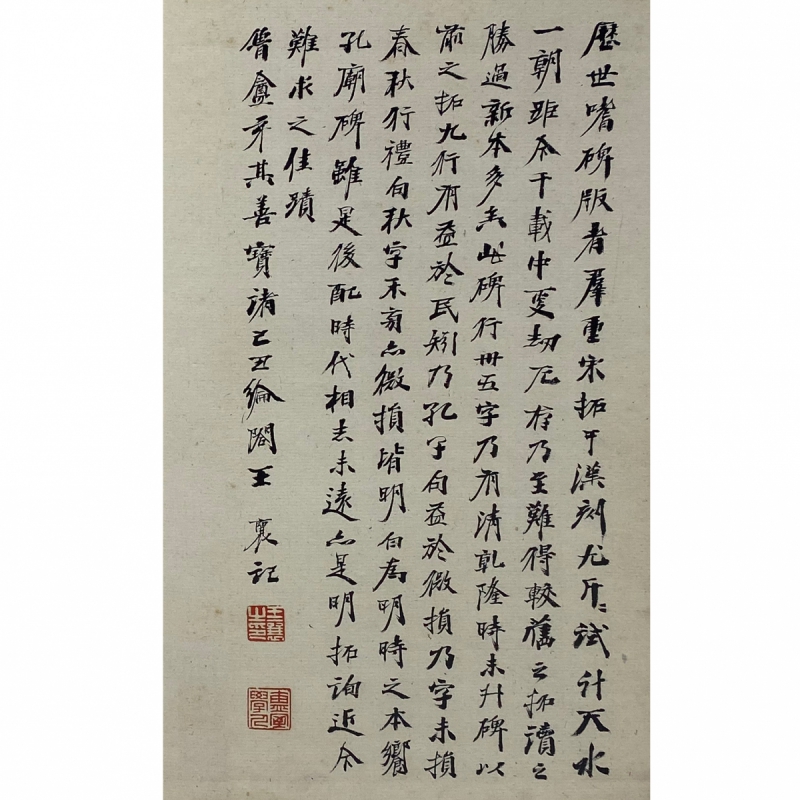 歷世嗜碑版者羣重宋拓于漢刻尤斤斤試計天水
一朝距今千載中更劫厄存乃至難得較舊之拓讀之
勝過新本多矣此碑行卅五字乃有清乾隆時未升碑以
前之拓九行有益於民矧乃孔子句益於微損乃字未損
春秋行禮句秋字禾旁亦微損皆明白為明時之本鄉
孔廟碑雖是後配時代相去未遠亦是明拓詢近今
難求之佳蹟
晉盦弟其善寶諸己丑綸閣王襄記
王襄之印